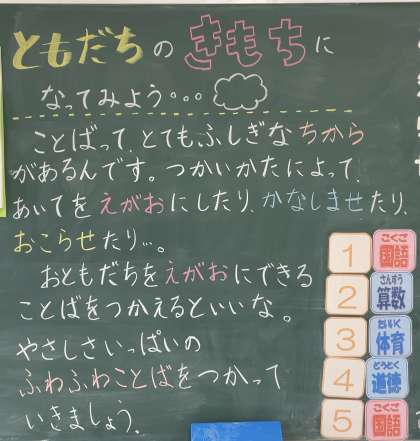 ともだちの きもちに
なってみよう・・・
ことばって、とてもふしぎなちから
があるんです。つかいかたによって、
あいてをえがおにしたり、かなしませたり、
おこらせたり…。
おともだちをえがおにできる
ことばをつかえるといいな。
やさしさいっぱいの
ふわふわことばをつかって
いきましょう。
1 こくご 国語
2 さんすう 算数
3 たいいく 体育
4 どうとく 道徳
5 こくご 国語